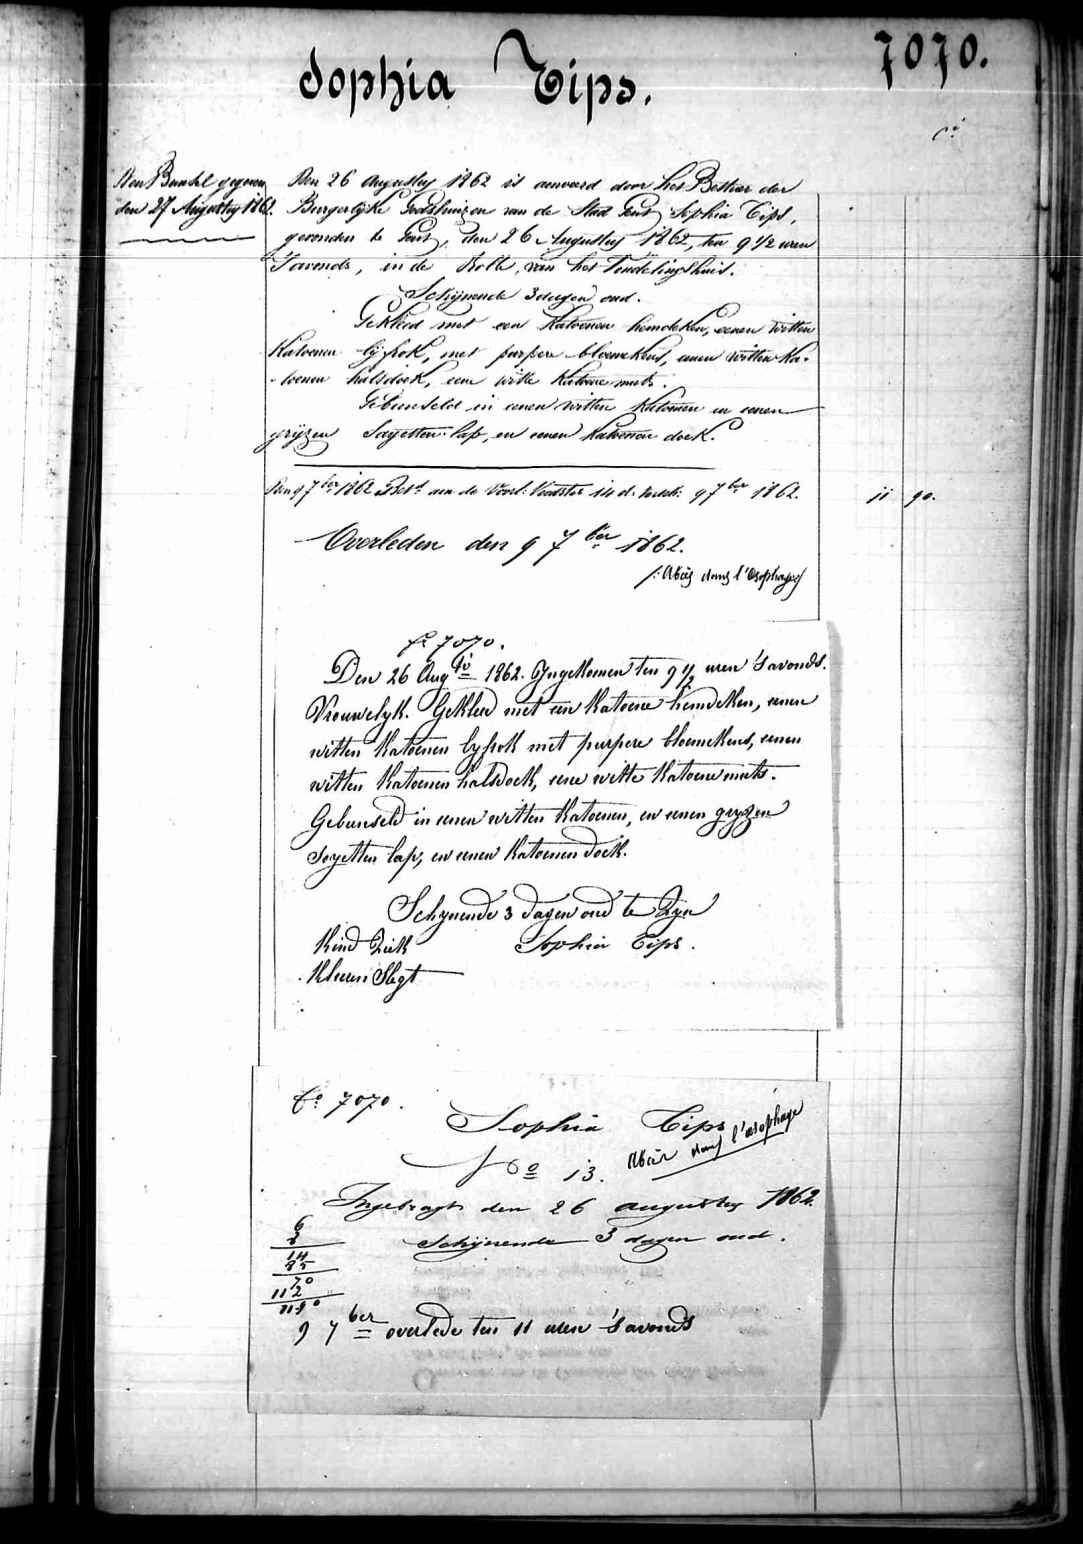 7070.
Sophia Tips.
Den Bunsel gegeven
den 27 Augusty 1862.
Den 26 Augusty 1862 is aenveerd door het Bestier der
Burgerlijke Godshuizen van de Stad Gent, Sophia Tips,
gevonden te Gent, den 26 Augusty 1862, ten 9 1/2 uren
'S avonds, in de Rolle van het Vondelingshuis.
Schijnende 3 dagen oud.
Gekleed met een katoenen hemdeken, eenen witten
katoenen lijfrok, met purpere bloemekens, eenen witten ka-
-toenen halsdoek, eene witte katoene muts.
Gebunseld in eenen witten katoenen en eenen
grijzen Sayetten lap, en eenen katoenen doek.
Den 9 7ber 1862 Bet^d aen de Voorl: Voedster 14 d: 9 7ber 1862. 11 90.
Overleden den 9 7ber 1862.
/: Abcès dans l'Esophage/
f° 7070.
Den 26 Aug^ti 1862. Ingekomen ten 9 1/2 uren 's avonds.
Vrouwelyk. Gekleed met een katoene hemdeken, eenen
witten katoenen lyfrok met purpere bloemekens, eenen
witten katoenen halsdoek, eene witte katoene muts.
Gebunseld in eenen witten katoenen, en eenen gryzen
Sayetten lap, en eenen katoenen doek.
Schynende 3 dagen oud te Zijn
Kind Ziek Sophia Tips.
Kleeren Slegt
f° 7070.
Sophia Tips
Abcès dans l'œsophage
N° 13.
Ingebragt den 26 augustus 1862.
Schijnende 3 dagen oud.
6
8
14
85
70
112
1190
9 7ber overlede ten 11 uren 's avonds